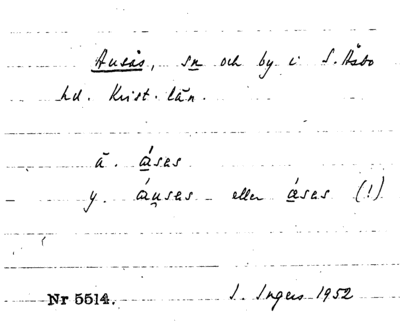 Ausås, sn och by i S. Åsbo
hd. Krist. län.
ä. ásas
y. áusas eller ásas (!)
Nr 5514. I. Ingers 1952